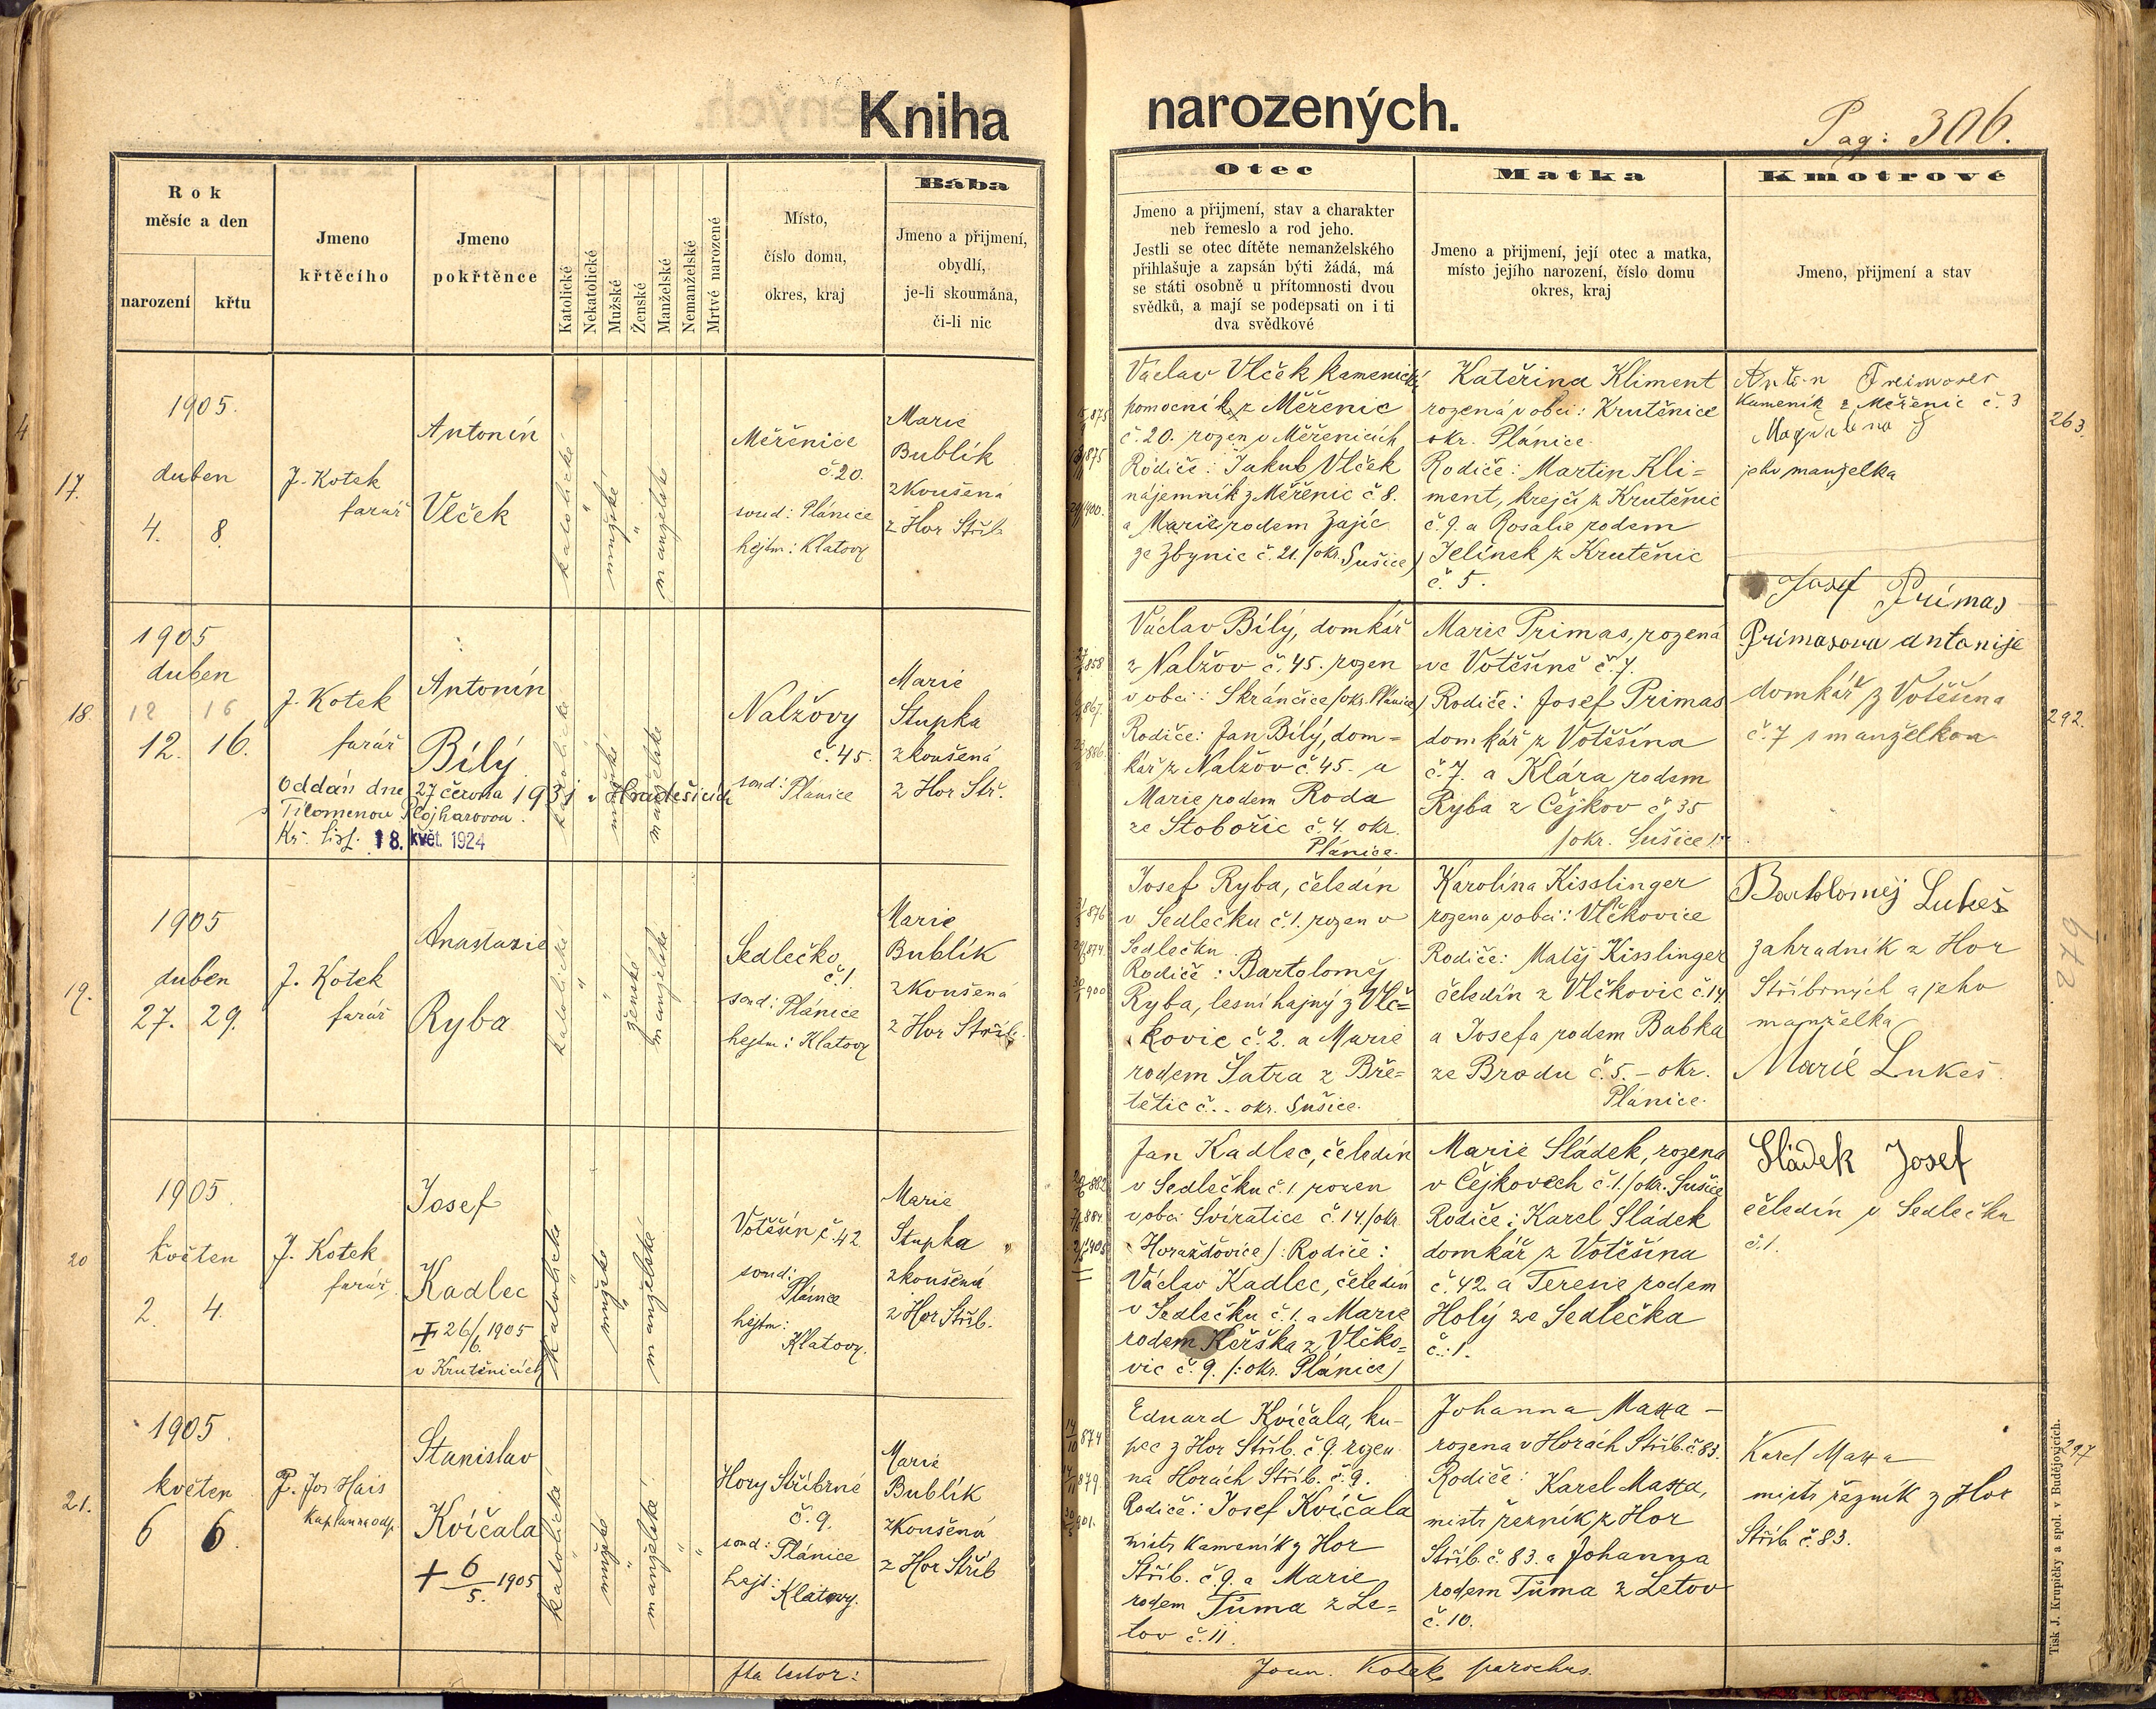 Kniha
narozených.
Pag: 306.
Rok
měsíc a den
narození
křtu
Jmeno
křtěcího
Jmeno
pokřtěnce
Katolické
Nekatolické
Mužské
Ženské
Manželské
Nemanželské
Mrtvé narozené
Místo,
číslo domu,
okres, kraj
Bába
Jmeno a přijmení,
obydlí,
je-li skoumána,
či-li nic
Otec
Jmeno a přijmení, stav a charakter
neb řemeslo a rod jeho.
Jestli se otec dítěte nemanželského
přihlašuje a zapsán býti žádá, má
se státi osobně u přítomnosti dvou
svědků, a mají se podepsati on i ti
dva svědkové
Matka
Jmeno a přijmení, její otec a matka,
místo jejího narození, číslo domu
okres, kraj
Kmotrové
Jmeno, přijmení a stav
17.
1905.
duben
4. 8.
J. Kotek
farář
Antonín
Vlček
katolické
mužské
manželské
Měřenice
č. 20.
soud: Plánice
hejtm: Klatovy
Marie
Bublík
zkoušená
z Hor Stříb.
Václav Vlček kamenický
pomocník z Měřenic
č. 20. rozen v Měřenicích
Rodiče: Jakub Vlček
nájemník z Měřenic č. 8.
a Marie rodem Zajíc
ze Zbynic č. 21. /okr. Sušice/
Kateřina Kliment
rozená v obci: Krutěnice
okr. Plánice.
Rodiče: Martin Kli=
ment, krejčí z Krutěnic
č. 9. a Rosalie rodem
Jelínek z Krutěnic
č. 5.
Kameník z Měřenic č. 3
Magdalena
jeho manželka
263.
18.
1905
duben
12 16
12. 16.
J. Kotek
farář
Antonín
Bílý
Oddán dne 27 června 1931 v Hradešicích
s Filomenou Plojharovou.
Kř. list. 18. květ. 1924
katolické
mužské
manželské
Nalžovy
č. 45.
soud: Plánice
Marie
Stupka
zkoušená
z Hor Stř.
Václav Bílý, domkář
z Nalžov č. 45. rozen
v obci: Skránčice /okr. Plánice/
Rodiče: Jan Bílý, dom=
kář z Nalžov č. 45. a
Marie rodem Roda
ze Stobořic č. 4. okr.
Plánice.
Marie Primas, rozená
ve Votěšíně č. 7.
Rodiče: Josef Primas
domkář z Votěšína
č. 7. a Klára rodem
Ryba z Čejkov č. 35
/okr. Sušice/
Josef Primas
Primasova antonije
domkář z Votěšína
č. 7 s manželkou
292.
19.
1905
duben
27. 29.
J. Kotek
farář
Anastazie
Ryba
katolické
ženské
manželské
Sedlečko
č. 1.
soud: Plánice
hejtm: Klatovy
Marie
Bublík
zkoušená
z Hor Stříb.
Josef Ryba, čeledín
v Sedlečku č. 1. rozen v
Sedlečku
Rodiče: Bartoloměj
Ryba, lesní hajný z Vlč=
kovic č. 2. a Marie
rodem Šatra z Bře=
tětic č. - okr. Sušice.
Karolína Kisslinger
rozena v obci: Vlčkovice
Rodiče: Matěj Kisslinger
čeledín z Vlčkovic č. 14
a Josefa rodem Babka
ze Brodu č. 5. - okr.
Plánice.
Bartoloměj Lukeš
zahradník z Hor
Stříbrných a jeho
manželka
Marie Lukeš.
20
1905.
květen
2. 4.
J. Kotek
farář
Josef
Kadlec
+ 26/6. 1905
v Krutěnicích
katolické
mužské
manželské
Votěšín č. 42
soud:
Plánice
hejtm:
Klatovy.
Marie
Stupka
zkoušená
z Hor Stříb.
Jan Kadlec, čeledín
v Sedlečku č. 1 rozen
v obci Svíratice č. 14. /okr.
Horažďovice/: Rodiče:
Václav Kadlec, čeledín
v Sedlečku č. 1. a Marie
rodem Keřška z Vlčko=
vic č. 9. /: okr. Plánice/
Marie Sládek, rozena
v Čejkovech č. 1. /okr. Sušice
Rodiče: Karel Sládek
domkář z Votěšína
č. 42. a Terezie rodem
Holý ze Sedlečka
č.: 1.
Sládek Josef
čeledín v Sedlečku
č. 1.
21.
1905.
květen
6 6.
P. Jos Hais
Stanislav
Kvíčala
+ 6/5. 1905
katolické
mužské
manželské
Hory Stříbrné
č. 9.
soud: Plánice
hejt: Klatovy.
Marie
Bublík
zkoušená
z Hor Stříb
Eduard Kvíčala, ku-
pec z Hor Stříb. č. 9. rozen
na Horách Stříb. č. 9.
Rodiče: Josef Kvíčala
mistr kameník z Hor
Stříb. č. 9. a Marie
rodem Tůma z Le=
tov č. 11.
Johanna Maxa -
rozena v Horách Stříb. č. 83.
Rodiče: Karel Maxa,
mistr řezník z Hor
Stříb. č. 83. a Johanna
rodem Tůma z Letov
č. 10.
Karel Maxa
mistr řezník z Hor
Stříb. č. 83.
297
Ita testor:
Joan. Kotek parochus.
Tisk J. Krupičky a spol. v Budějovicích.